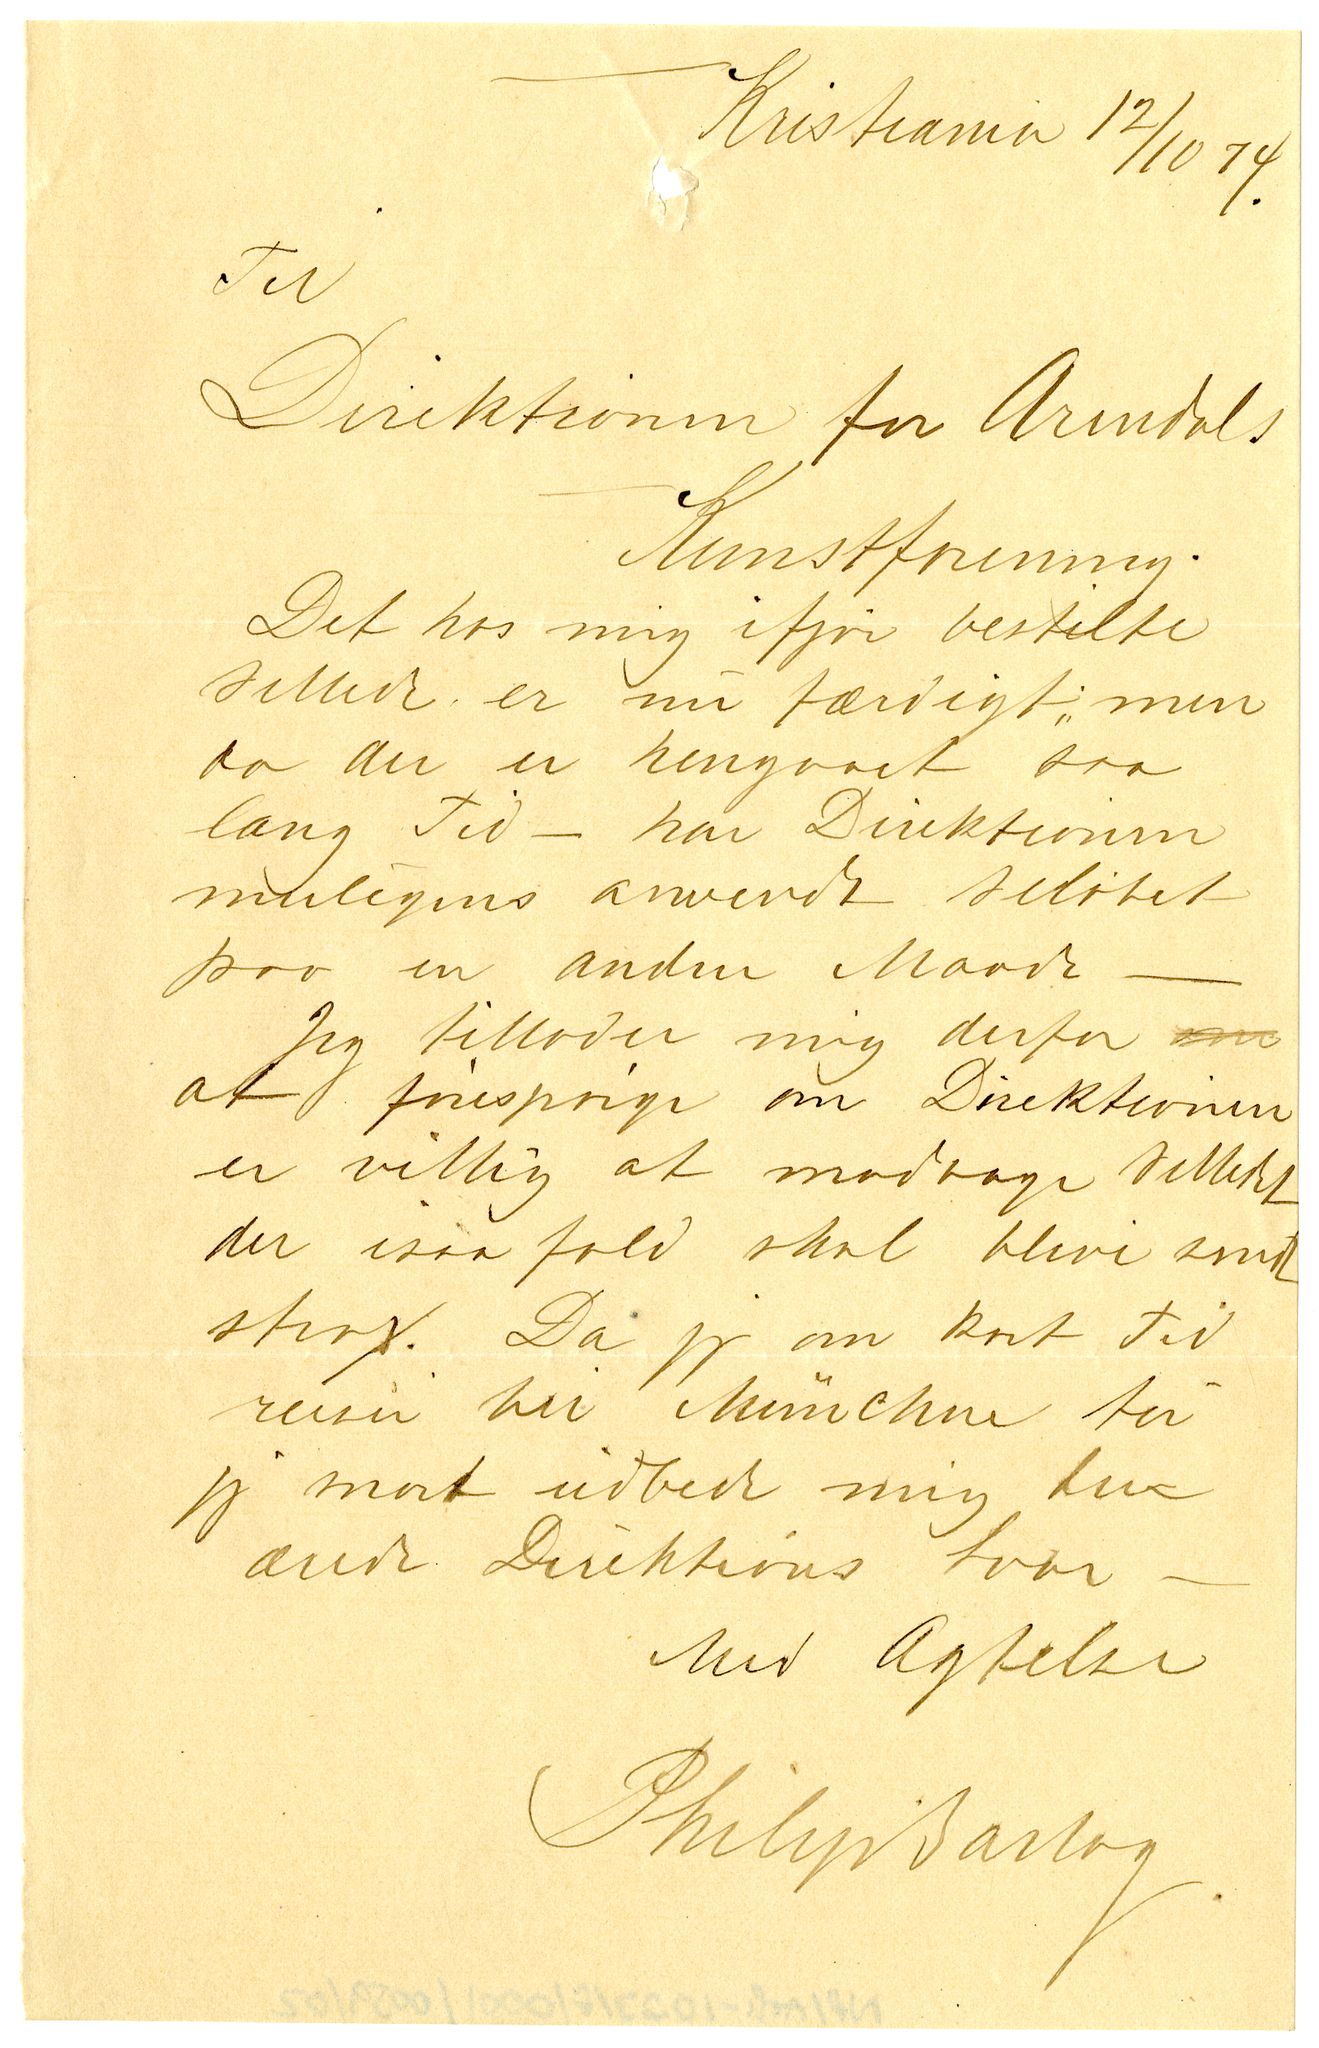 Kristiania 12/10 74.
Til
Direktionen for Arendals
Kunstforening.
Det hos mig ifjor bestilte
Billede er nu færdigt, men
da der er hengaaet saa
lang Tid – har Direktionen
muligens anvendt Beløbet
paa en anden Maade —
Jeg tillader mig derfor
at forespørge om Direktionen
er villig at modtage Billedet
der isaa fald skal blive sendt
strax. Da jeg om kort Tid
reiser til München tør
jeg snart udbede mig den
ærede Direktions Svar –
Med Agtelse
Philip Barlag